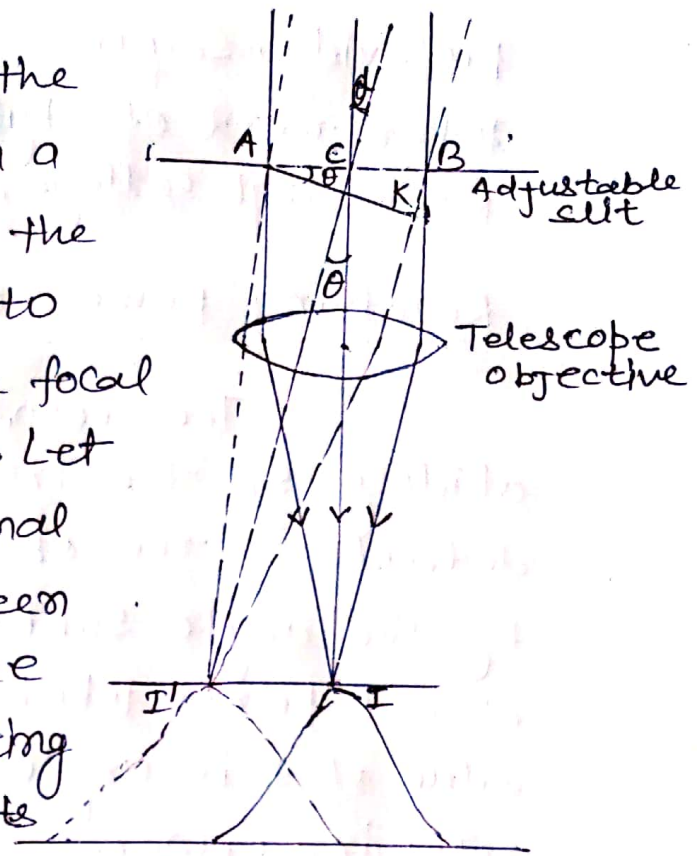 the
a
the
to
focal
Let
nal
een
e
ing
ts
θ
A C B
θ
K
Adjustable
slit
θ
Telescope
objective
I' I